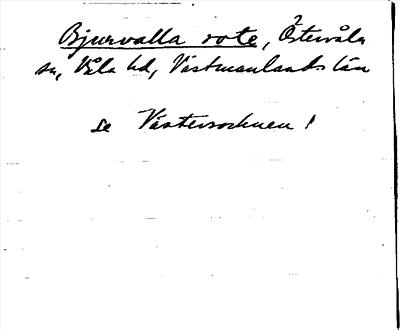 Bjurvalla rote, Östervåla
sn, Våla hd, Västmanlands län
se Västersocknen!